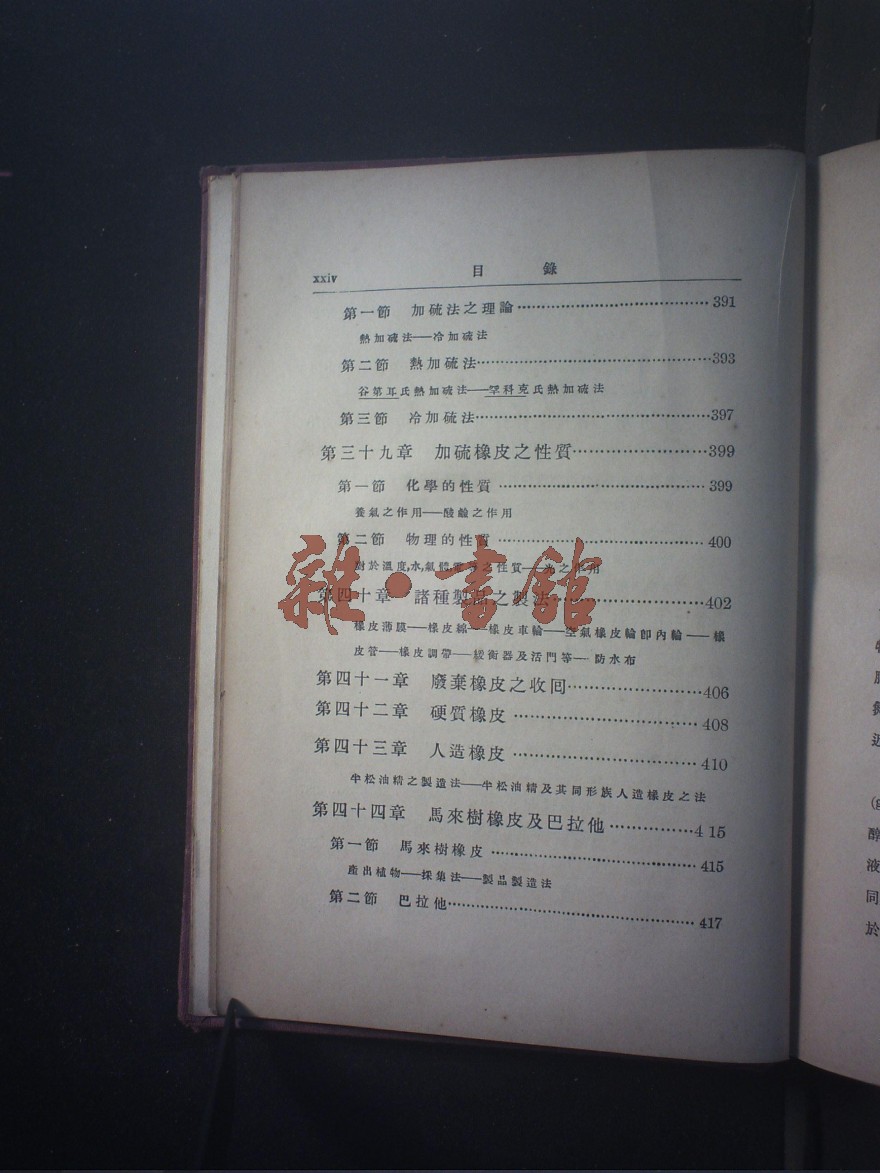 xxiv 目 錄
第一節 加硫法之理論……391
熱加硫法——冷加硫法
第二節 熱加硫法……393
谷第耳氏熱加硫法——罕科克氏熱加硫法
第三節 冷加硫法……397
第三十九章 加硫橡皮之性質……399
第一節 化學的性質……399
養氣之作用——酸鹼之作用
第二節 物理的性質……400
對於溫度,水,氣體,電等之性質——光之作用
第四十章 諸種製品之製法……402
橡皮薄膜——橡皮線——橡皮車輪——空氣橡皮輪卽內輪——橡
皮管——橡皮調帶——緩衝器及活門等——防水布
第四十一章 廢棄橡皮之收囘……406
第四十二章 硬質橡皮……408
第四十三章 人造橡皮……410
半松油精之製造法——半松油精及其同形族人造橡皮之法
第四十四章 馬來樹橡皮及巴拉他……4 15
第一節 馬來樹橡皮……415
產出植物——採集法——製品製造法
第二節 巴拉他……417
雜·書館
近
醇
液
同
於